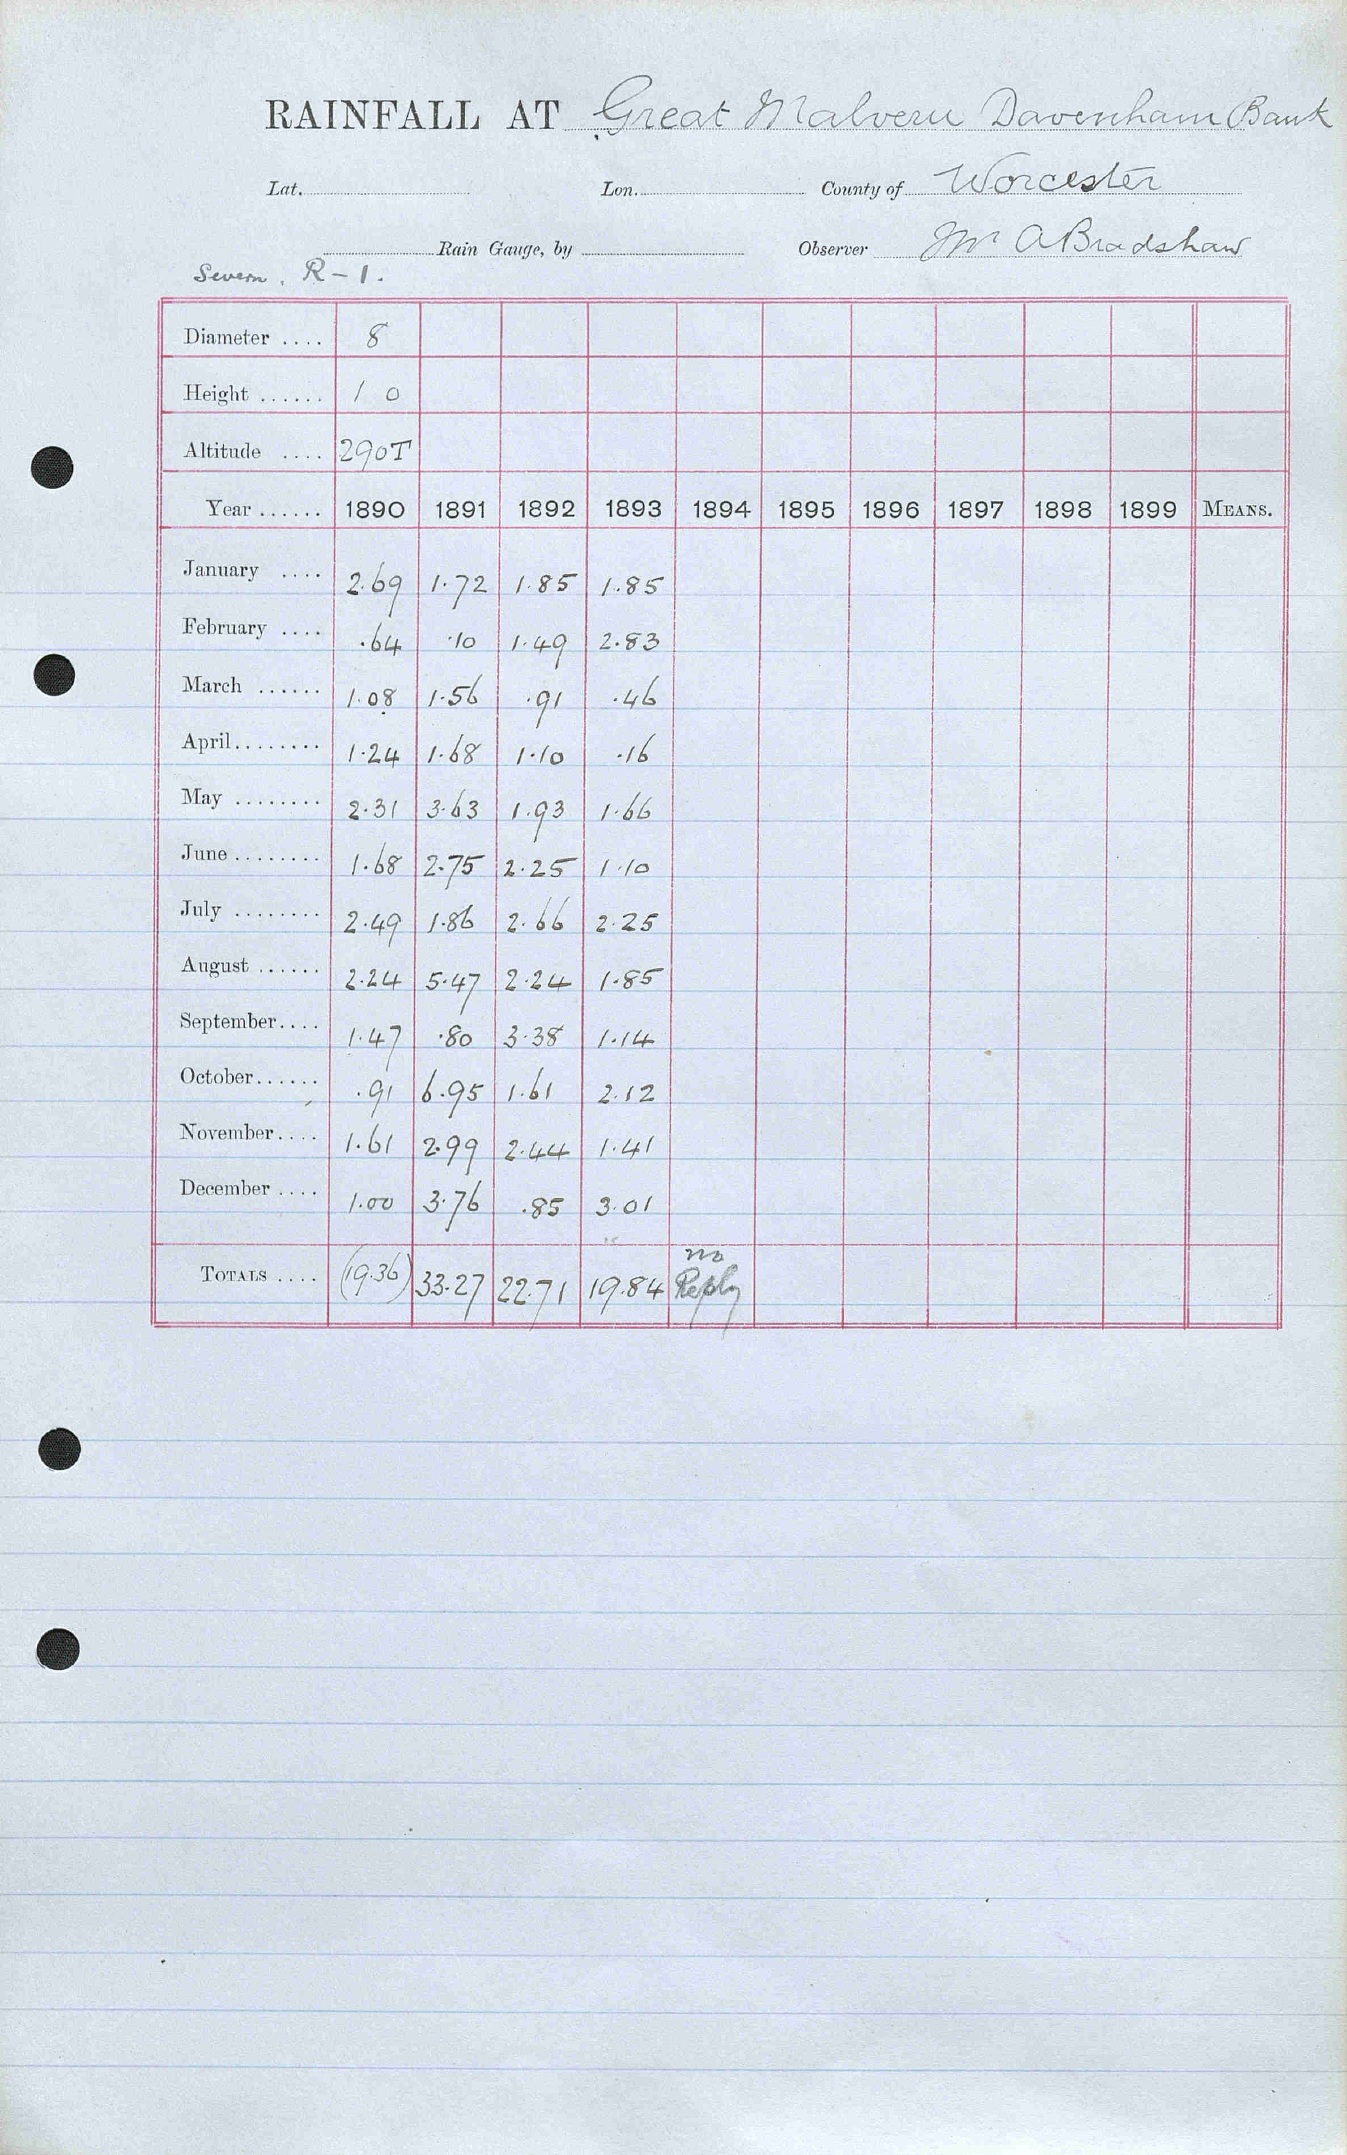 RAINFALL AT Great Malvern Davenham Bank
Lat. Lon. County of Worcester
Rain Gauge, by Observer Mr A Bradshaw
Severn. R-1.
Diameter .... 8
Height ...... 1 0
Altitude .... 290T
Year ...... 1890 1891 1892 1893 1894 1895 1896 1897 1898 1899 MEANS.
January .... 2.69 1.72 1.85 1.85
February .... .64 .10 1.49 2.83
March ...... 1.08 1.56 .91 .46
April........ 1.24 1.68 1.10 .16
May ........ 2.31 3.63 1.93 1.66
June ........ 1.68 2.75 2.25 1.10
July ........ 2.49 1.86 2.66 2.25
August ...... 2.24 5.47 2.24 1.85
September.... 1.47 .80 3.38 1.14
October...... .91 6.95 1.61 2.12
November.... 1.61 2.99 2.44 1.41
December .... 1.00 3.76 .85 3.01
TOTALS .... (19.36) 33.27 22.71 19.84 no Reply